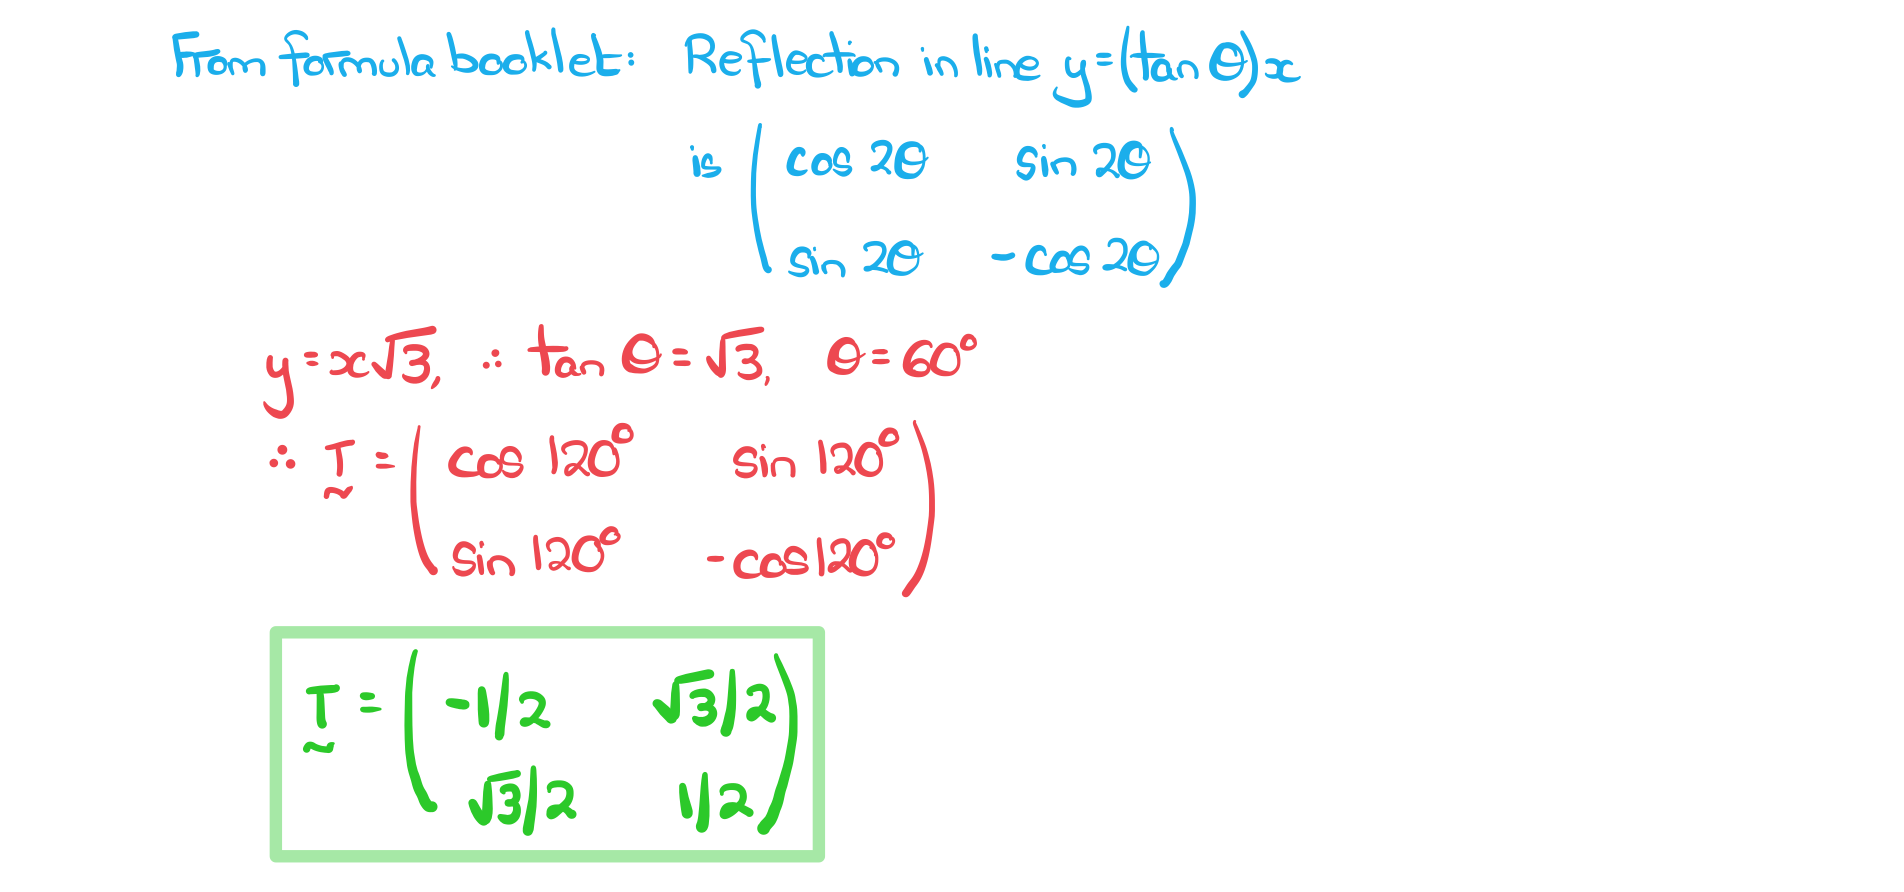 From formula booklet: Reflection in line y = (tan θ)x
is ( cos 2θ sin 2θ
sin 2θ - cos 2θ )
y = x√3, ∴ tan θ = √3, θ = 60°
∴ T = ( cos 120° sin 120°
sin 120° - cos 120° )
T = ( -1/2 √3/2
√3/2 1/2 )